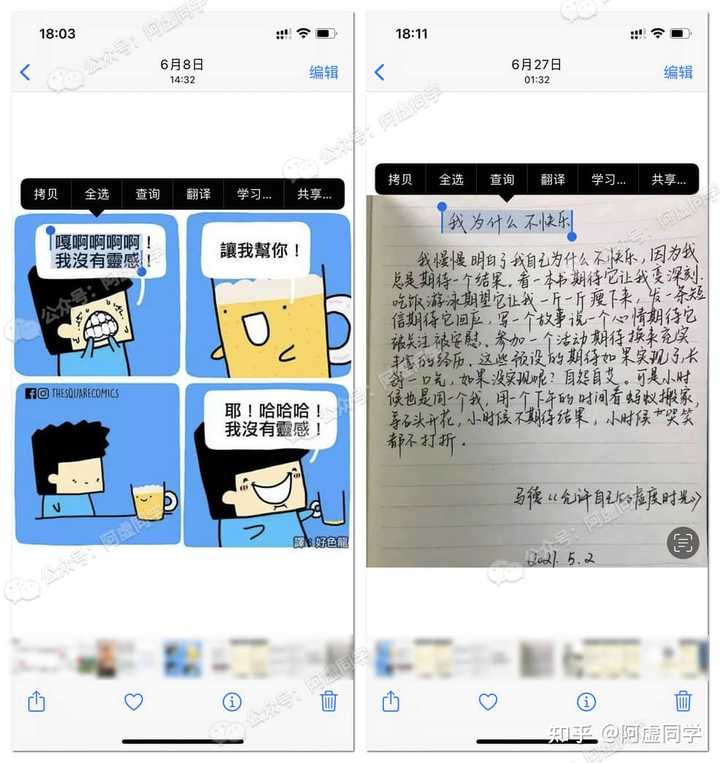 18:03
6月8日
14:32
编辑
拷贝 全选 查询 翻译 学习... 共享...
嘎啊啊啊啊!
我沒有靈感!
讓我幫你!
THESQUARECOMICS
耶!哈哈哈!
我沒有靈感!
譯:好色龍
18:11
6月27日
01:32
编辑
拷贝 全选 查询 翻译 学习... 共享...
我为什么不快乐
我慢慢明白了我自己为什么不快乐,因为我
总是期待一个结果。看一本书期待它让我变深刻.
吃饭游泳期望它让我一斤一斤瘦下来,发一条短
信期待它回应,写一个故事说一个心情期待它
被关注被安慰。参加一个活动期待换来充实
丰富的经历。这些预设的期待如果实现了,长
舒一口气,如果没实现呢?自怨自艾。可是小时
候也是同一个我,用一个下午的时间看蚂蚁搬家,
等石头开花,小时候不期待结果,小时候哭笑
都不打折。
马德《允许自己的虚度时光》
2021.5.2
公众号:阿虚同学
知乎 @阿虚同学